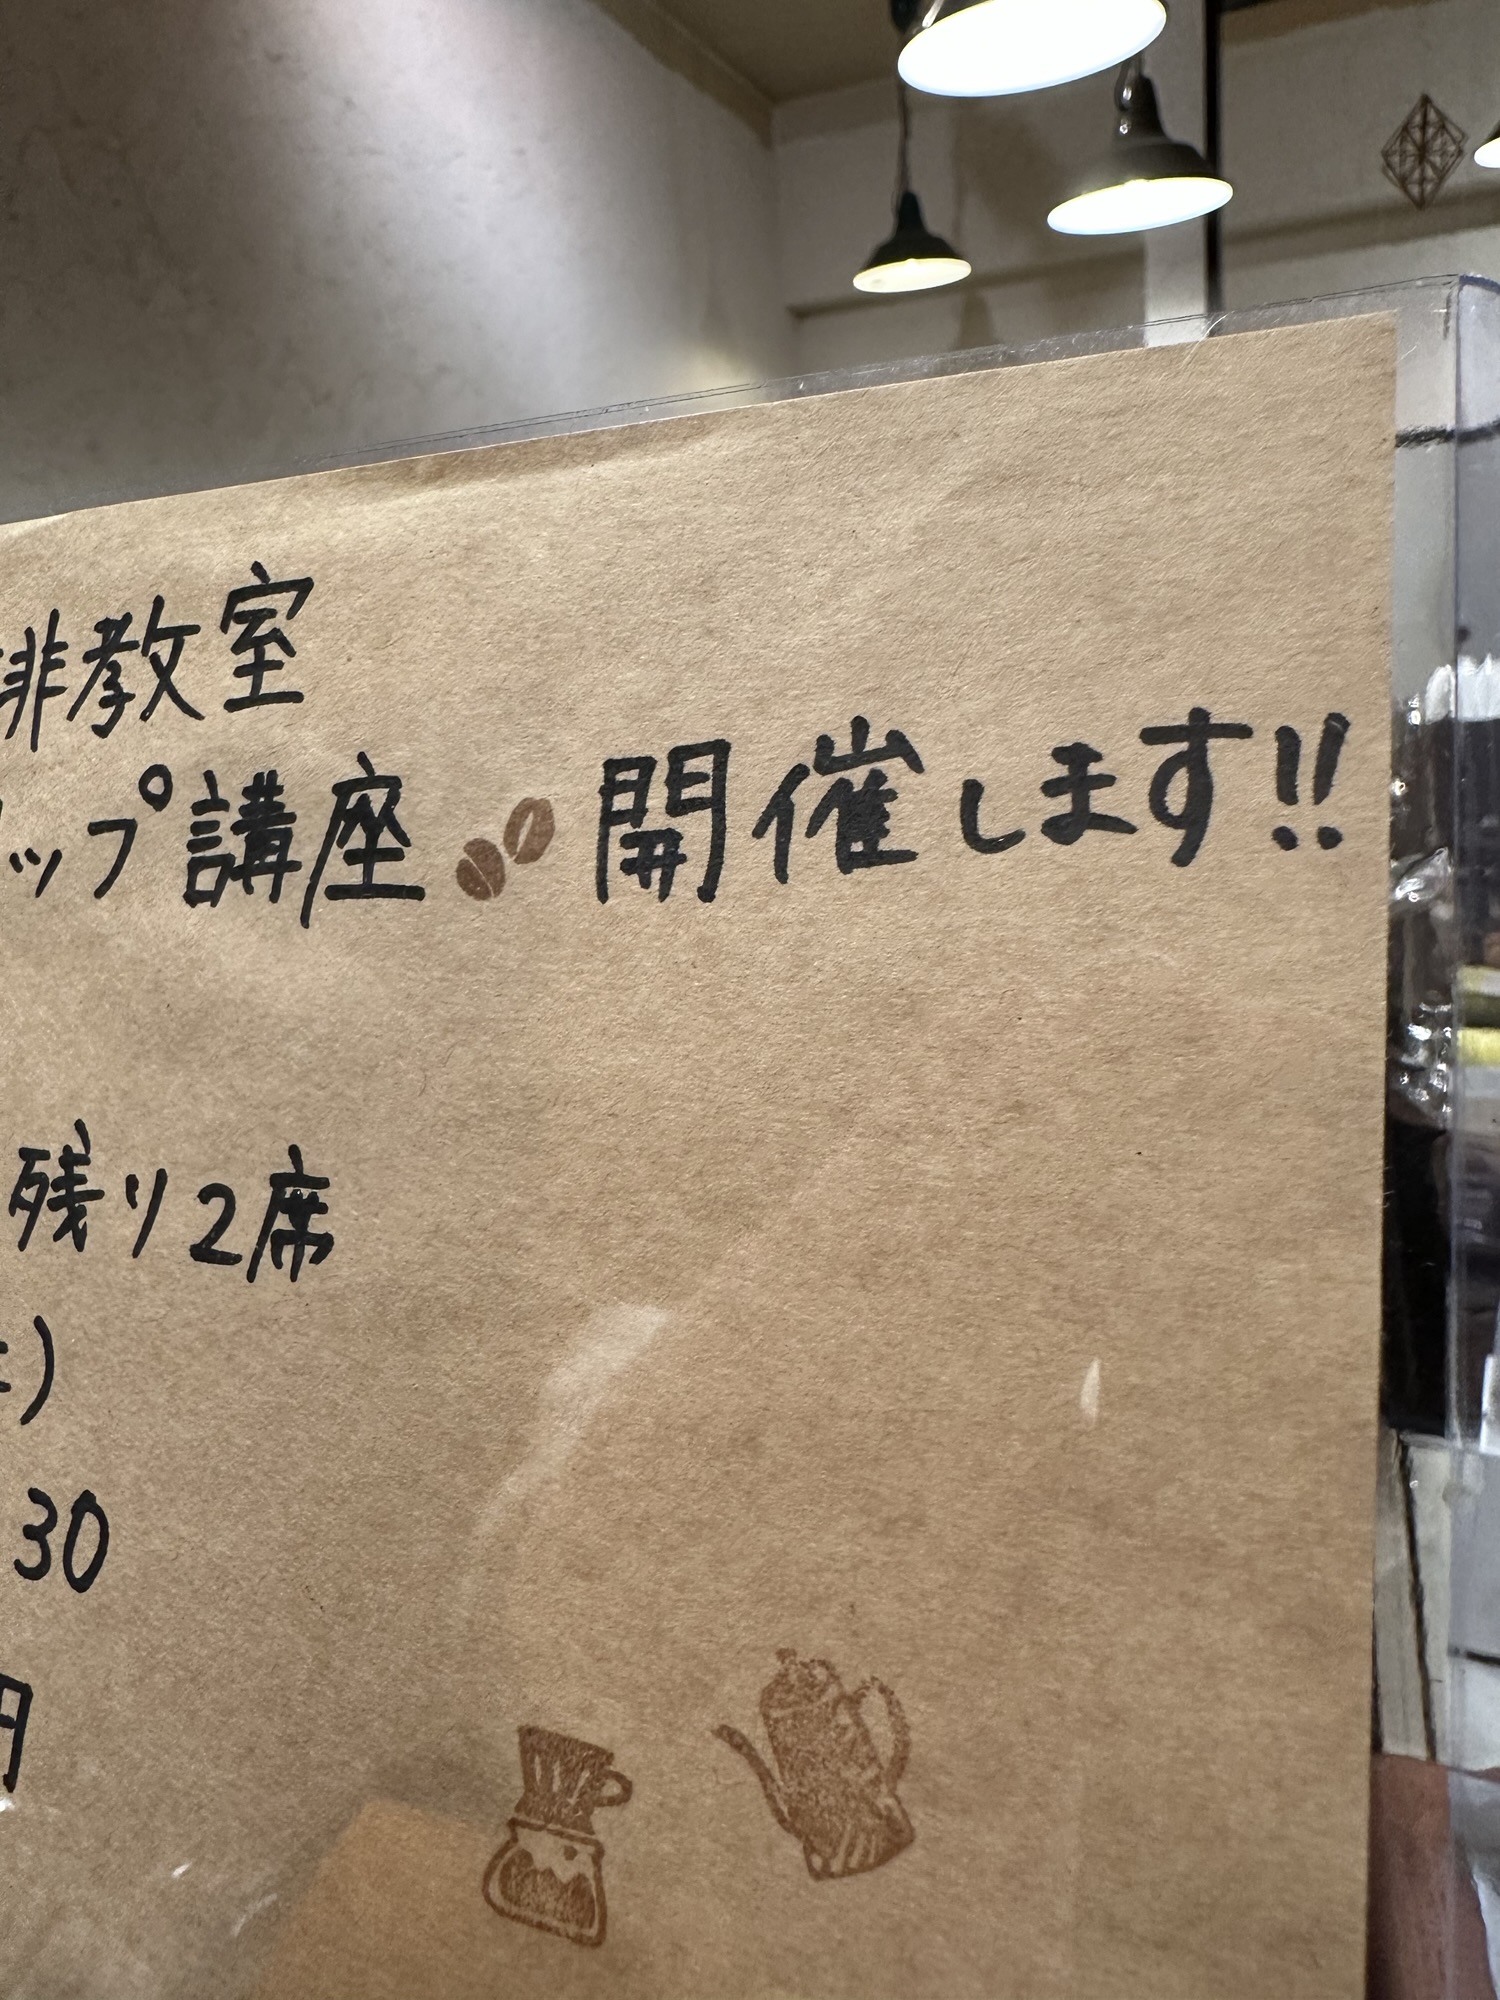 琲教室
ップ講座 開催します!!
残り2席
)
30
円